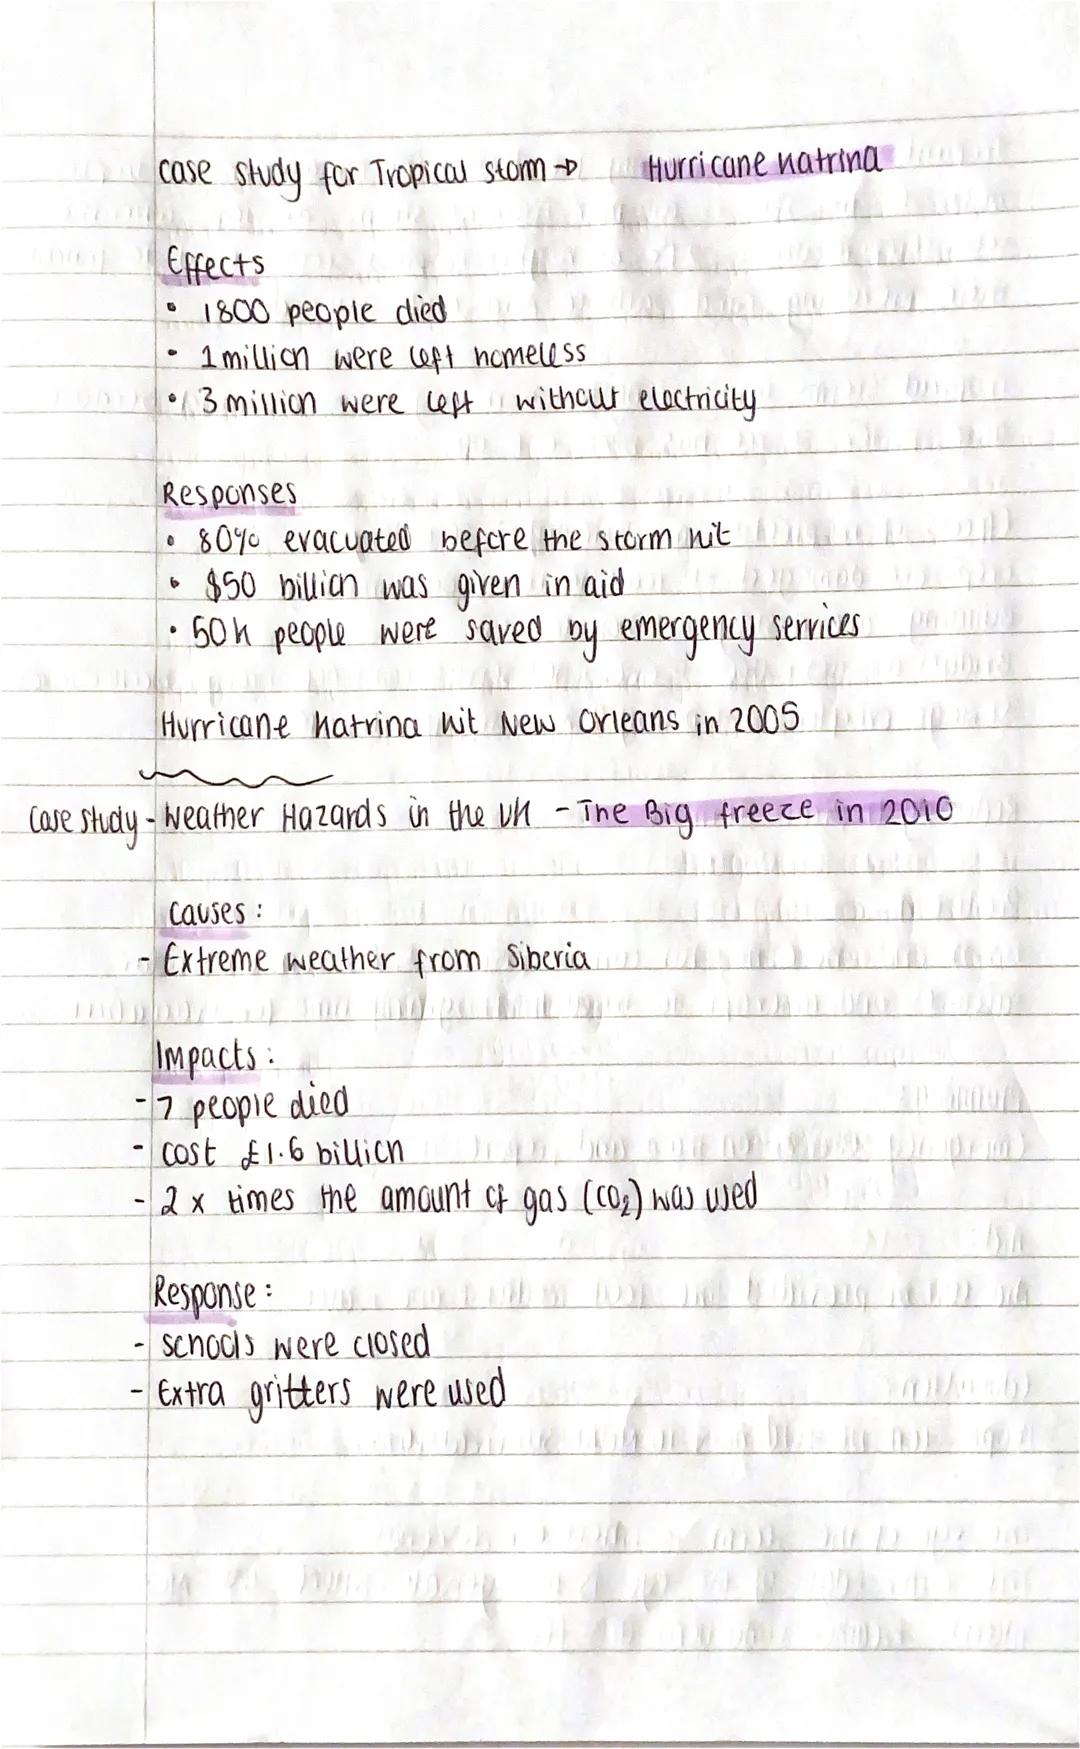 case study for Tropical storm → Hurricane Katrina
Effects
• 1800 people died
• 1 million were left homeless
• 3 million were left without electricity
Responses
• 80% evacuated before the storm hit
• $50 billion was given in aid
• 50k people were saved by emergency services
Hurricane Katrina hit New Orleans in 2005
Case study - Weather Hazards in the UK - The Big freeze in 2010
Causes :
- Extreme weather from Siberia
Impacts :
- 7 people died
- cost £1.6 billion
- 2 x times the amount of gas (CO₂) was used
Response :
- schools were closed
- Extra gritters were used